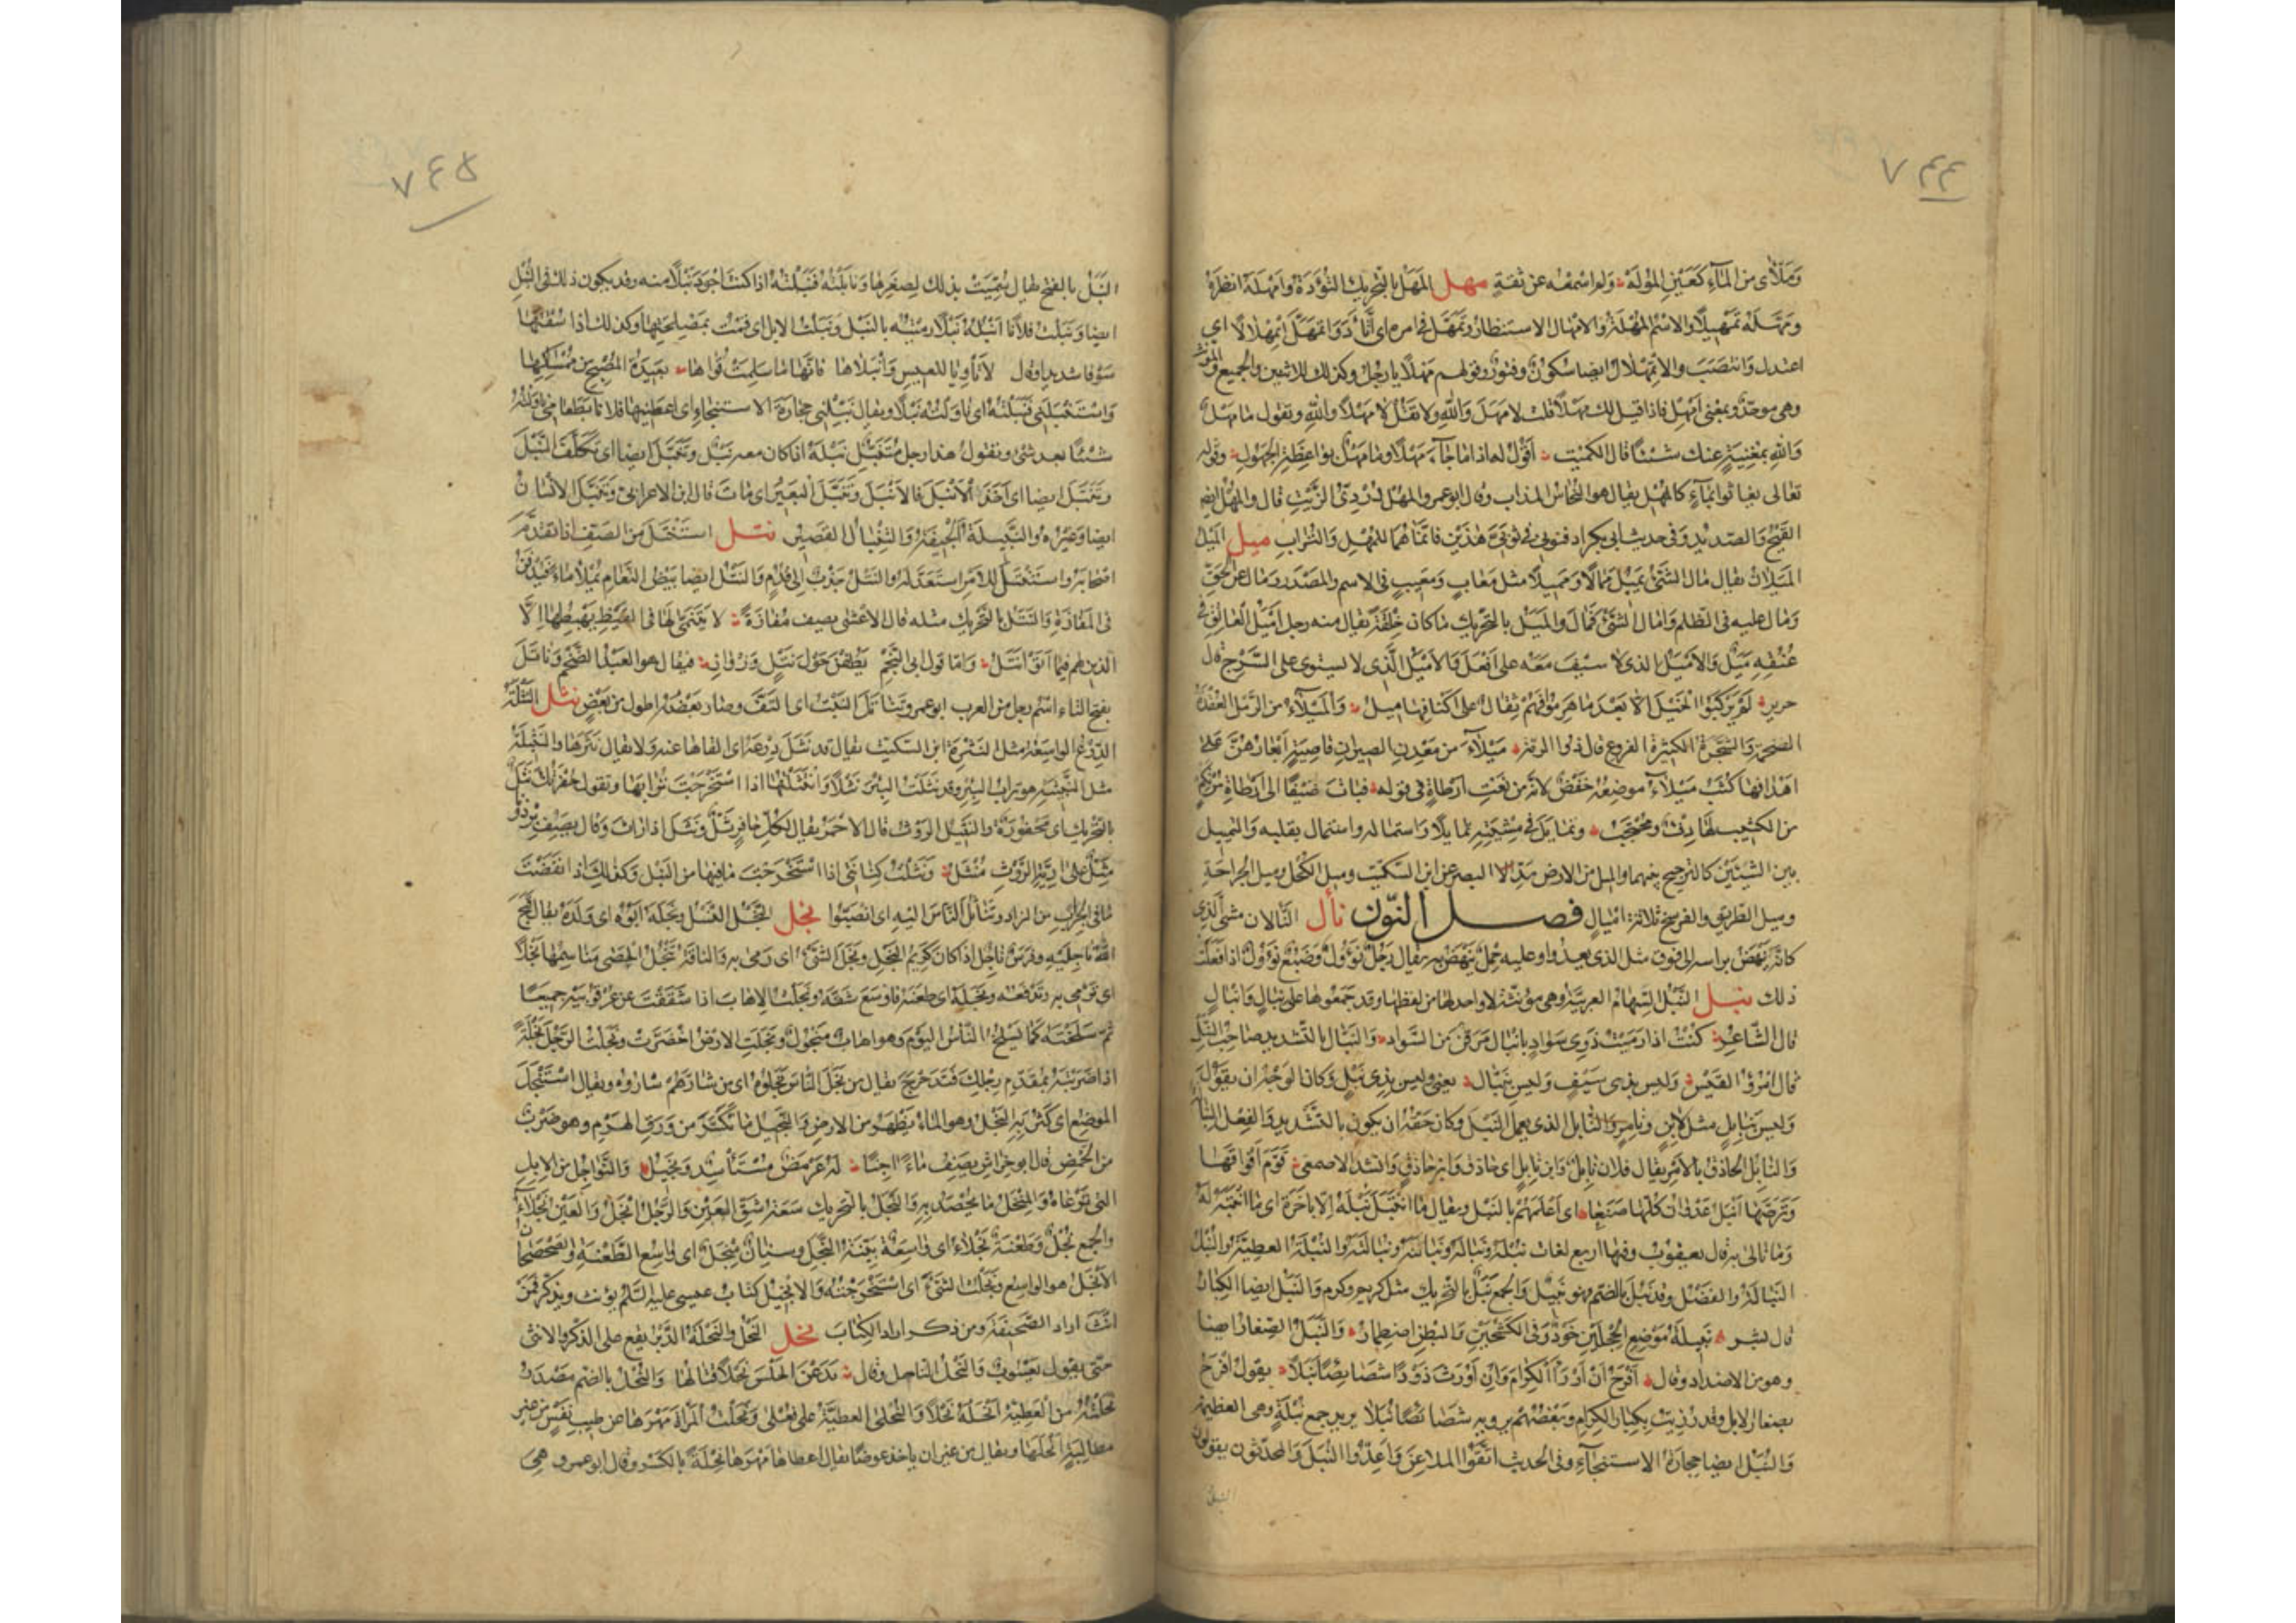 ٧٤٤
ومَلَأى من المآء كعَيْنِ المُولَه ولم اسمعه عن ثقةٍ مهل المَهَل بالتحريك التُؤَدَة وامهله انظره
ومهّله تمهيلًا والاسم المُهْلَة والامهال الاستنظار وتمهّل فى امره اى اتّأدَ واتمَهَلَّ اتمِهلالًا اى
اعتدل وانتصَبَ والاتمِهْلال ايضا سكون وفتور وقولهم مَهْلًا يا رجل وكذلك للاثنين والجميع والمؤنث
وهى موحدة بمعنى اَمْهِل فاذا قيل لك مهلًا قلت لا مَهْلَ والله ولا تقل لا مهلًا والله وتقول ما مهل
والله بمغنيةٍ عنك شيئًا قال الكميت اقول له اذا ما جآء مهلًا وما مهل بواعظة الجهول وقوله
تعالى يغاثوا بمآءٍ كالمهل يقال هو النحاس المذاب وقال ابو عمرو المهل دُرْدِىّ الزّيت قال والمهل ايضا
القَيْح والصديد وفى حديث ابى بكر ادفنونى فى ثوبىّ هذين فانّما هما للمهل والتراب ميل الميل
الميلان يقال مال الشئ يميل ممالًا ومميلًا مثل معاب ومعيب فى الاسم والمصدر ومال عن الحقّ
ومال عليه فى الظلم وامال الشئ فمال والمَيَل بالتحريك ما كان خِلْقة يقال منه رجل اَميل العاتق فى
عُنُقِه مَيَل والاميل الذى لا سيف معه على اَفْعَل والاميل الذى لا يستوى على السَّرج قال
جرير لم يركبوا الخيل الا بعد ما هرموا فهم ثقال على اكتافها ميل والميلآء من الرّمل العُقدة
الضخمة والشجرة الكثيرة الفروع قال ذو الرمّة ميلآءَ من معدن الصيران قاصية ابعارهن على
اهدافها كثب ميلآء موضعه خفض لانه من نعت ارطاة فى قوله فبات ضيفًا الى ارطاة مرتكم
من الكثيب لها دِفْء ومحتجب وتمايل فى مشيته تمايلًا واستماله واستمال بقلبه والتمييل
بين الشيئين كالترجيح بينهما والميل من الارض مدّ البصر عن ابن السكيت وميل الكحل وميل الجراحة
وميل الطريق والفرسخ ثلاثة اميال فصل النّون نأل النَّأَلان مشى الّذى
كانّه ينهض براسه الى فوق مثل الذى يعدو وعليه حِمل ينهض به يقال رجل نؤول وضبع نؤول اذا فعلت
ذلك نبل النَّبْل السّهام العربيّة وهى مؤنثة لا واحد لها من لفظها وقد جمعوها على نبال وانبال
قال الشّاعر وكنت اذا رميت ذوى سواد بانبال مرقن من السّواد والنّبّال بالتشديد صاحب النّبل
قال امرؤ القيس وليس بذى سيف وليس بنبّال يعنى وليس بذى نبل وكان الوجه ان يقول
وليس بنابل مثل لابن وتامر والنّابل الذى يعمل النبل وكان حقّه ان يكون بالتشديد والفعل النِبالة
والنابل الحاذق بالامر يقال فلان نابل وابن نابل اى حاذق وابن حاذق وانشد الاصمعى قوّم افواقها
وترّصها انبل عدوان كلّها صَنَعا اى اعلمهم بالنبل ويقال ما انتبل نبله الّا باَخَرة اى ما انتبه له
وما بالى به قال يعقوب وفيها اربع لغات نبله ونباله ونبالته والنُبْلة العطيّة والنُبْل
النَبالة والفضل وقد نبُل بالضم فهو نبيل والجمع نَبَل بالتحريك مثل كريم وكرم والنَبَل ايضا الكبار
قال بشر نبيلة موضع الحِجلين خَوْد وفى الكشحين والبطن اضطمار والنَبَل الصغار ايضا
وهو من الاضداد وقال افرح ان اُرزأ الكرام وان اورث ذَوْدًا شصائصًا نَبَلا يقول افرح
بصغار الابل وقد رُزِئت بكبار الكرام وبعضهم يرويه شصائصًا نُبَلا يريد جمع نُبْلة وهى العظيمة
والنُبَل ايضا حجارة الاستنجآء وفى الحديث اتقوا الملاعن واعدّوا النُبَل والمحدّثون يقولون
النبل
٧٤٥
النَّبَل بالفتح يقال سُمّيت بذلك لصغرها ونابلته فنبلته اذا كنت اجود نبلًا منه وقد يكون ذلك فى النُبل
ايضا ونبلت فلانا انبله نبلًا رميته بالنبل ونبلت الابل اى قمت بمصلحتها وكذلك اذا سقتها
سوقا شديدا وقال لا تأويا للعيس وانبلاها فانها ما سلمت قواها بعيدة المصبح من ممساها
واستنبلنى فنبلته اى ناولته نبلًا ويقال نبّلنى حجارة الاستنجاء اى اعطنيها
شيئًا بعد شئ وتقول هذا رجل متنبّل نَبْله اذا كان معه نبل وتنبّل ايضا اى تكلّف النُبْل
وتنبّل ايضا اى اخذ الانبل فالانبل وتنبّل البعير اى مات قال ابن الاعرابى وتنبّل الانسان
ايضا وغيره والنبيلة الجيفة والتِنْبال القصير نتل استنتل من الصّف اذا تقدّم
اصحابه واستنتل للامر استعدّ له والنتل جذب الى قُدُم والنتل ايضا بيض النعام يُملأ ماءً فيدفن
فى المفازة والنَتَل بالتحريك مثله قال الاعشى يصف مفازة لا يتنمّى لها فى القيظ يهبطها الّا
الذين لهم فيما اتوا نتل وامّا قول ابى النجم يطفن حول نتل وزوان فيقال هو العبد الضّخم وناتَل
بفتح التاء اسم رجل من العرب ابو عمرو تناتل النَّبت اى التفّ وصار بعضه اطول من بعض نثل النثلة
الدّرع الواسعة مثل النثرة ابن السكيت يقال قد نثل درعه اى القاها عنه ولا يقال نثرها والنثيلة
مثل النبيثة هو تراب البئر وقد نثلت البئر نثلًا وانتثلتها اذا استخرجت ترابها وتقول حفرتك نَثَل
بالتحريك اى محفورة والنثيل الروث قال الاحمر يقال لكل حافر ثلّ ونثل اذا راث وقال يصف برذونا
مِثَلّ على آريّه الروث مُنْثَل ونثلت كنانتى اذا استخرجت ما فيها من النبل وكذلك اذا نفضت
ما فى الجراب من الزاد وتناثل النّاس اليه اى انصبّوا نجل النَّجل النسل ونجله ابوه اى ولده يقال قبح
الله ناجليه وفرس ناجل اذا كان كريم النجل ونجل الشئ اى رمى به والناقة تنجل الحصى مناسمها نجلًا
اى ترمى به وتدفعه ونجله اى طعنه فاوسع شقّه ونجلت الاهاب اذا شققت عن عرقوبيه جميعا
ثم سلخته كما يسلخ الناس اليوم وهو اهاب منجول ونجلت الارض اخضرّت ونجلت الرجل نجلة
اذا ضربته بمقدّم رجلك فتدحرج يقال من نجل الناس نجلوه اى من شارّهم شارّوه ويقال استنجل
الموضع اى كثر به النجل وهو الماء يظهر من الارض والنجيل ما تكسّر من ورق الهرم وهو ضرب
من الحمض قال ابو خراش يصف ماءً آجنا له عرمض مستأسد ونجيل والنواجل من الابل
التى ترعاه والمنجل ما يحصد به والنَجَل بالتحريك سعة شقّ العين والرجل انجل والعين نجلآء
والجمع نُجْل وطعنة نجلاء اى واسعة بيّنة النجل وسنان منجل اى واسع الطعنة وصحصحان
الانجل هو الواسع ونجلت الشئ اى استخرجته والانجيل كتاب عيسى عليه السّلم يؤنث ويذكر فمن
انّث اراد الصّحيفة ومن ذكر اراد الكتاب نحل النحل والنحلة الدَّبْر يقع على الذكر والانثى
حتى يقول يعسوب والنحل الناحل وقال والنُحل بالضم مصدر
نحلته من العطية انحله نُحلًا والنُحلى العطيّة على فُعلى ونحلت المرأة مهرها عن طيب نفس من غير
مطالبة انحلها ويقال من غير ان ياخذ عوضًا يقال اعطاها مهرها نِحلة بالكسر وقال ابو عمرو هى